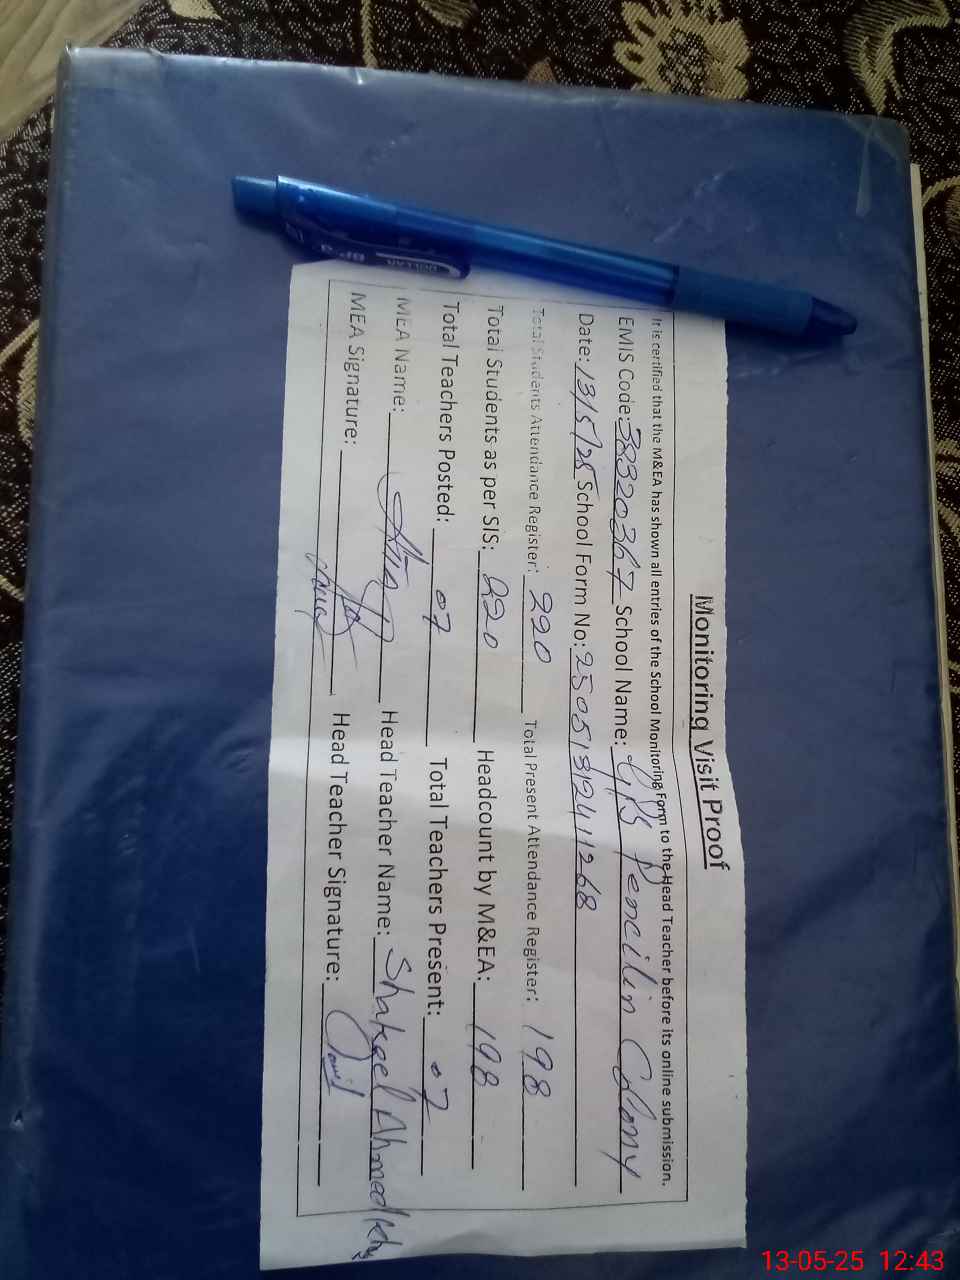 Monitoring Visit Proof
It is certified that the M&EA has shown all entries of the School Monitoring Form to the Head Teacher before its online submission.
EMIS Code: 38320367 School Name: GPS Pencilin Colony
Date: 13/5/25 School Form No: 25051312411268
Total Students Attendance Register: 220 Total Present Attendance Register: 198
Total Students as per SIS: 220 Headcount by M&EA: 198
Total Teachers Posted: 07 Total Teachers Present: 07
MEA Name: Head Teacher Name: Shakeel Ahmad
MEA Signature: Head Teacher Signature:
DOLLAR
13-05-25 12:43